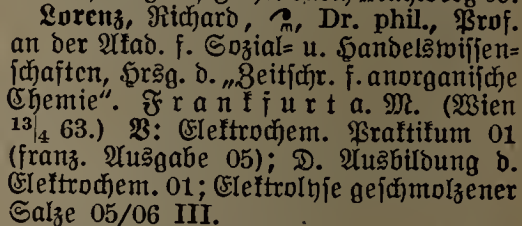 Lorenz, Richard, Dr. phil., Prof.
an der Akad. f. Sozial= u. Handelswissen=
schaften, Hrsg. d. „Zeitschr. f. anorganische
Chemie“. Frankfurt a. M. (Wien
13/4 63.) V: Elektrochem. Praktikum 01
(franz. Ausgabe 05); D. Ausbildung d.
Elektrochem. 01; Elektrolyse geschmolzener
Salze 05/06 III.